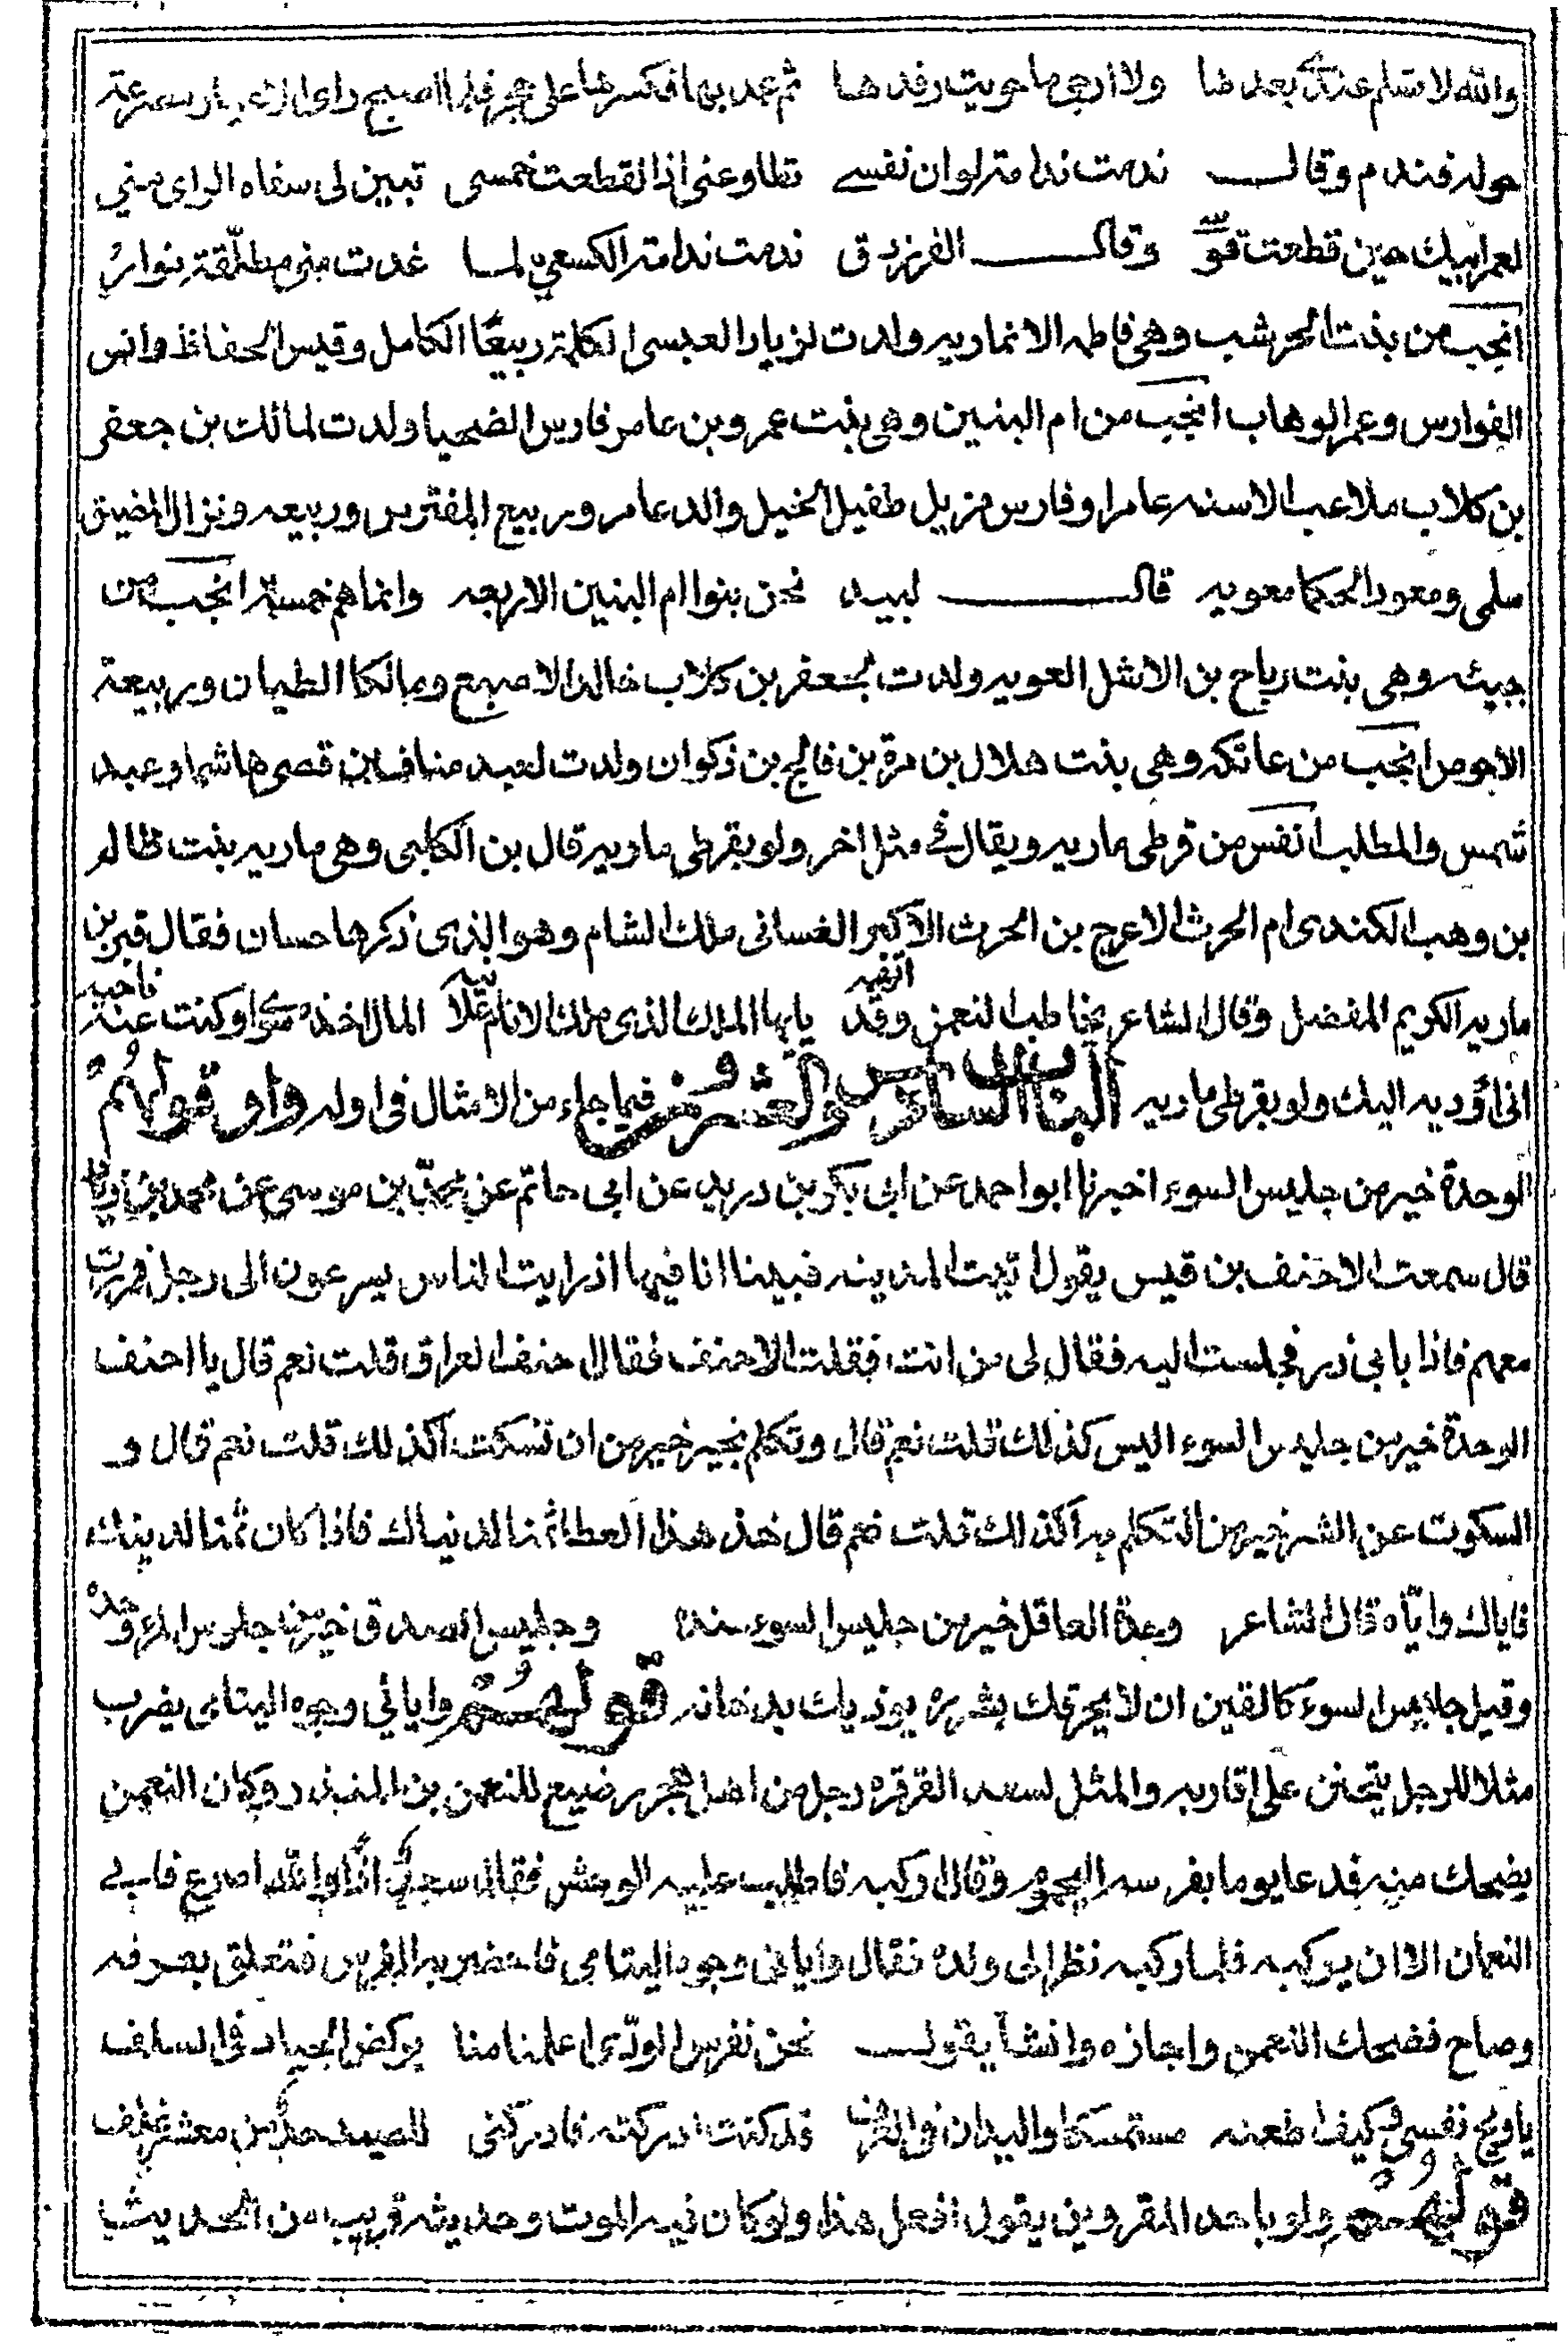 والله لا تسلم عندي بعدها ولا ارجي ما حويت رفدها ثم عمد بها فكسرها على حجر فلما اصبح راى الاعيار مصرعة
حوله فندم وقال ندمت ندامة لو ان نفسي تطاوعني اذا لقطعت خمسي تبين لى سفاه الراى مني
لعمر ابيك حين قطعت قوسي وقال الفرزدق ندمت ندامة الكسعي لما غدت مني مطلقة نوار
انجب من بنت الخرشب وهي فاطمه الانماريه ولدت لزياد العبسى الكملة ربيعا الكامل وقيس الحفاظ وانس
الفوارس وعمر الوهاب انجب من ام البنين وهى بنت عمرو بن عامر فارس الضحيا ولدت لمالك بن جعفر
بن كلاب ملاعب الاسنه عامرا وفارس قرزل طفيل الخيل والد عامر وربيع المقترين وربيعه ونزال المضيق
سلمى ومعود الحكما معويه قال لبيد نحن بنوا ام البنين الاربعه وانما هم خمسة انجب من
خبيئه وهى بنت رياح بن الاشل الغويه ولدت لجعفر بن كلاب خالدا الاصبع ومالكا الطيان وربيعة
الاحوص انجب من عاتكه وهى بنت هلال بن مرة بن فالج بن ذكوان ولدت لعبد مناف بن قصى هاشما وعبد
شمس والمطلب انفس من قرطى ماريه ويقال في مثل اخر ولو بقرطى ماريه قال بن الكلبى وهى ماريه بنت ظالم
بن وهب الكندى ام الحرث الاعرج بن الحرث الاكبر الغسانى ملك الشام وهو الذى ذكرها حسان فقال قبر بن
ماريه الكريم المفضل وقال الشاعر يخاطب النعمن وقد يايها الملك الذى ملك الانام علانيه المال اخذه سواى وكنت عنه ناحيه
انى اؤديه اليك ولو بقرطى ماريه الباب السادس والعشرون فيما جاء من الامثال فى اوله واو قولهم
الوحدة خير من جليس السوء اخبرنا ابو احمد عن ابى بكر بن دريد عن ابى حاتم عن محمد بن موسى عن محمد بن زياد
قال سمعت الاحنف بن قيس يقول اتيت المدينه فبينا انا فيها اذ رايت الناس يسرعون الى رجل فمررت
معهم فاذا بابى ذر فجلست اليه فقال لى من انت فقلت الاحنف فقال احنف العراق قلت نعم قال يا احنف
الوحدة خير من جليس السوء اليس كذلك قلت نعم قال وتكلم بخير خير من ان تسكت اكذلك قلت نعم قال و
السكوت عن الشر خير من التكلم به اكذلك قلت نعم قال خذ هذا العطا ثمنا لدنياك فاذا كان ثمنا لدينك
فاياك واياه قال الشاعر وحدة العاقل خير من جليس السوء عنده وجليس الصدق خير من جلوس المرء وحده
وقيل جليس السوء كالقين ان لا يحرقك بشرره يوذيك بدخانه قولهم وابابي وجوه اليتامى يضرب
مثلا للرجل يتحنن على اقاربه والمثل لسعد القرقره رجل من اهل هجر رضيع للنعمن بن المنذر وكان النعمن
يضحك منه فدعا يوما بفرسه اليحموم وقال اركبه فاطلب عليه الوحش فقال سعد اذا والله اصرع فابى
النعمان الا ان يركبه فلما ركبه نظر الى ولده فقال وابابى وجوه اليتامى فاحضر به الفرس فتعلق بعرفه
وصاح فضحك النعمن واجازه وانشا يقول نحن نغرس الودى اعلمنا منا بركض الجياد فى السلف
يا ويح نفسى كيف اطعنه مستمسكا واليدان فى العرف قد كنت ادركته فادركنى للصيد من معشر عنف
قولهم ولو باحد المقروين يقول افعل هذا ولو كان فيه الموت وحديثه قريب من الحديث